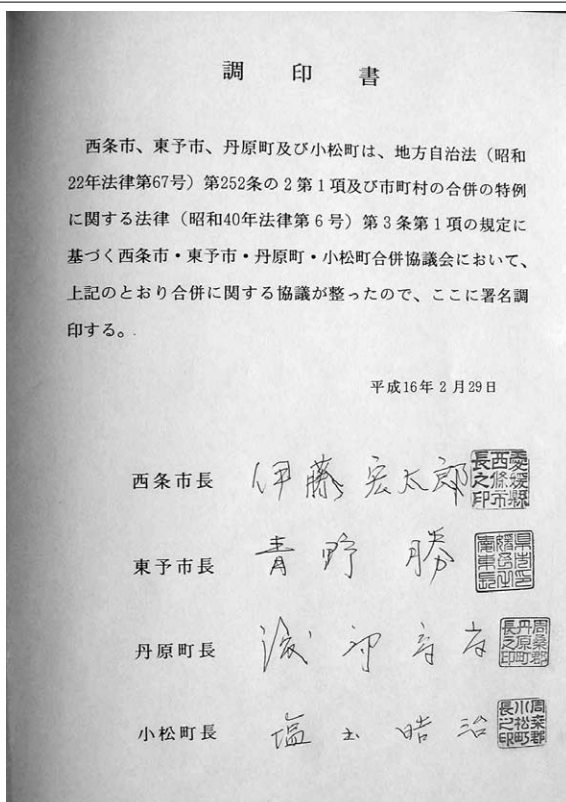 調印書
西条市、東予市、丹原町及び小松町は、地方自治法（昭和
22年法律第67号）第252条の２第１項及び市町村の合併の特例
に関する法律（昭和40年法律第６号）第３条第１項の規定に
基づく西条市・東予市・丹原町・小松町合併協議会において、
上記のとおり合併に関する協議が整ったので、ここに署名調
印する。
平成16年２月29日
西条市長 伊藤宏太郎 愛媛縣西條市長之印
東予市長 青野 勝
丹原町長 周桑郡丹原町長之印
小松町長 塩出 皓治 周桑郡小松町長之印